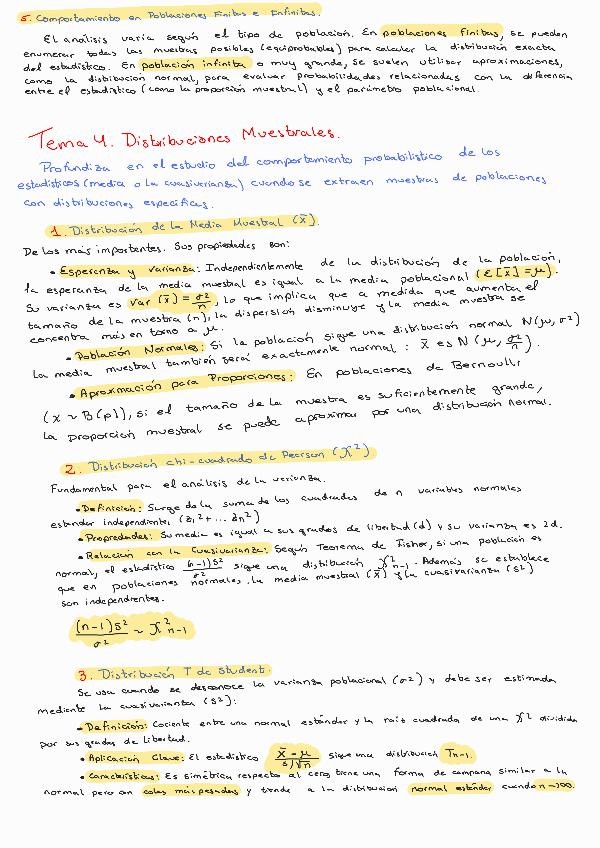 5. Comportamiento en Poblaciones Finitas e Infinitas.
El análisis varía según el tipo de población. En poblaciones finitas, se pueden
enumerar todas las muestras posibles (equiprobables) para calcular la distribución exacta
del estadístico. En población infinita o muy grande, se suelen utilizar aproximaciones,
como la distribución normal, para evaluar probabilidades relacionadas con la diferencia
entre el estadístico (como la proporción muestral) y el parámetro poblacional.
Tema 4. Distribuciones Muestrales.
Profundiza en el estudio del comportamiento probabilístico de los
estadísticos (media o la cuasivarianza) cuando se extraen muestras de poblaciones
con distribuciones específicas.
1. Distribución de la Media Muestral (x̄).
De los más importantes. Sus propiedades son:
• Esperanza y Varianza: Independientemente de la distribución de la población,
la esperanza de la media muestral es igual a la media poblacional (E[x̄] = μ).
Su varianza es Var(x̄) = σ²/n, lo que implica que a medida que aumenta el
tamaño de la muestra (n), la dispersión disminuye y la media muestra se
concentra más en torno a μ.
• Población Normales: Si la población sigue una distribución normal N(μ, σ²)
la media muestral también será exactamente normal: x̄ es N(μ, σ²/n).
• Aproximación para Proporciones: En poblaciones de Bernoulli
(x ~ B(p)), si el tamaño de la muestra es suficientemente grande,
la proporción muestral se puede aproximar por una distribución normal.
2. Distribución chi-cuadrado de Pearson (χ²)
Fundamental para el análisis de la varianza.
• Definición: Surge de la suma de los cuadrados de n variables normales
estándar independiente, (z₁² + ... zn²)
• Propiedades: Su media es igual a sus grados de libertad (d) y su varianza es 2d.
• Relación con la Cuasivarianza: Según Teorema de Fisher, si una población es
normal, el estadístico (n-1)S²/σ² sigue una distribución χ²n-1. Además se establece
que en poblaciones normales, la media muestral (x̄) y la cuasivarianza (S²)
son independientes.
(n-1)S²/σ² ~ χ²n-1
3. Distribución T de Student.
Se usa cuando se desconoce la varianza poblacional (σ²) y debe ser estimada
mediante la cuasivarianza (S²):
• Definición: Cociente entre una normal estándar y la raíz cuadrada de una χ² dividida
por sus grados de libertad.
• Aplicación Clave: El estadístico x̄ - μ / s/√n sigue una distribución Tn-1.
• Características: Es simétrica respecto al cero, tiene una forma de campana similar a la
normal pero con colas más pesadas y tiende a la distribución normal estándar cuando n→∞.